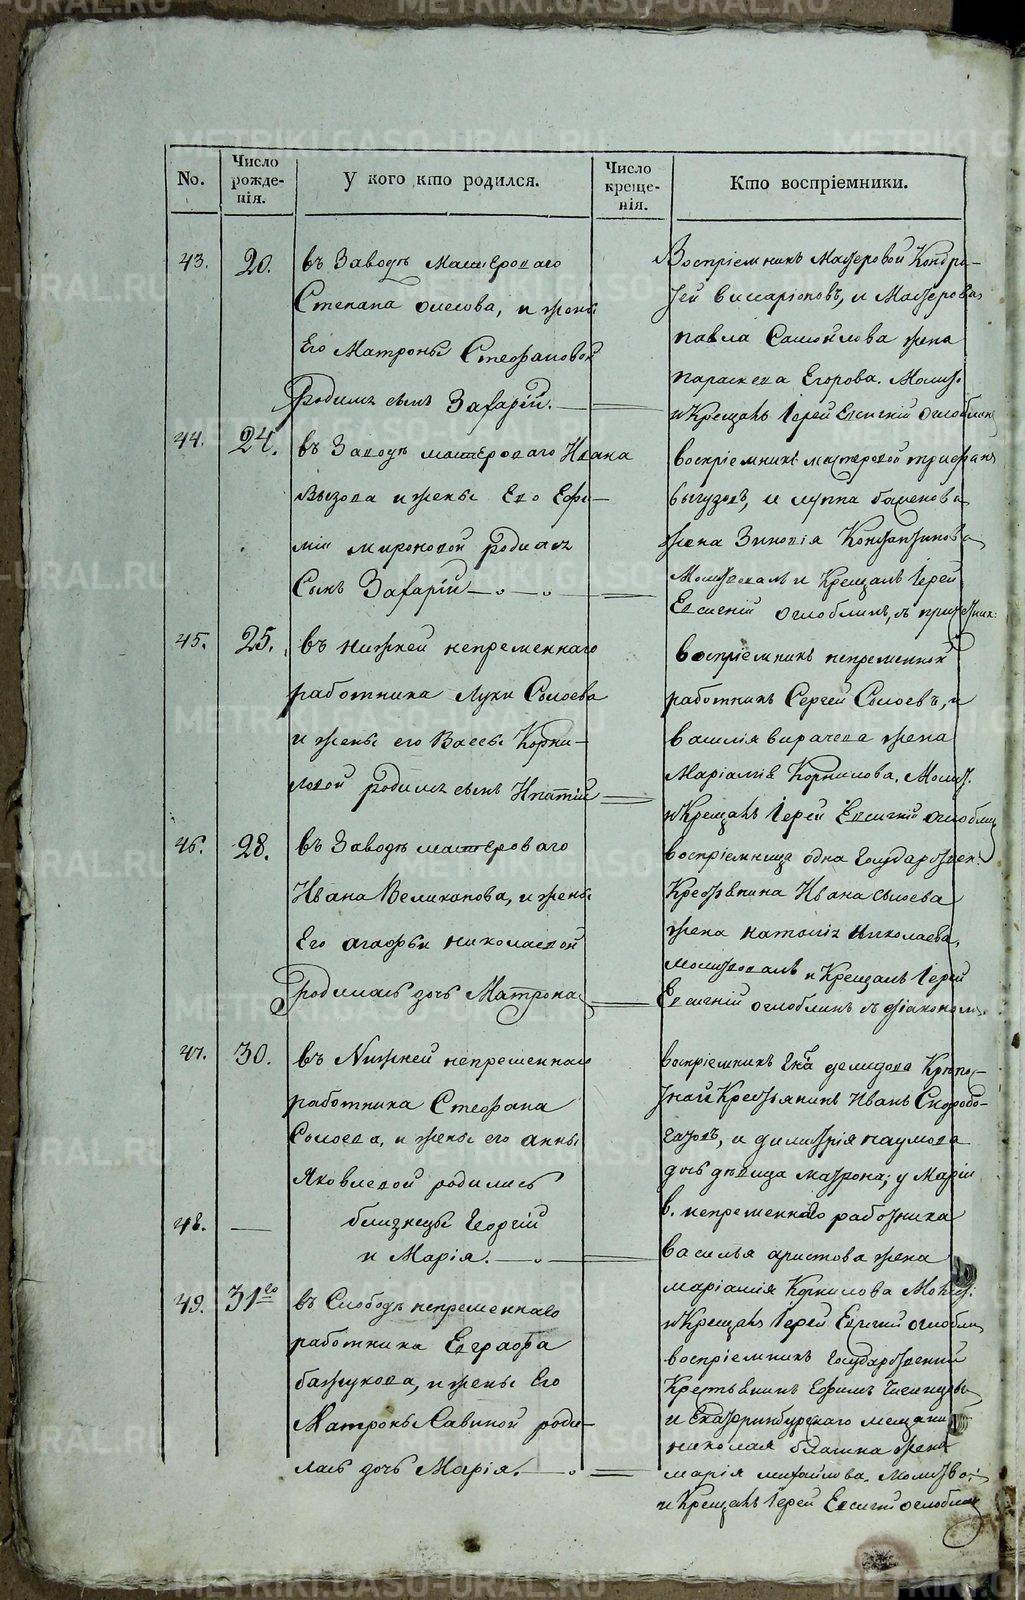 METRIKI.GASO-URAL.RU
No.
Число рожде-
нія.
У кого кто родился.
Число
креще-
нія.
Кто воспріемники.
43. 20.
въ Заводѣ Мастероваго
Степана
и жены
Его Матроны Стефановой
родился сынъ Захарій.
Воспріемникъ Мастеровой Кондра-
тей Виссаріоновъ, и Мастероваго
павла Самойлова жена
параскева Егорова. Молит.
и Крещалъ Іерей Евсигній Оглоблинъ
44. 24.
въ Заводѣ мастероваго Ивана
Вызова и жены Его Ефи-
міи мироновой родился
Сынъ Захарій
воспріемникъ мастеровой трифанъ
и
жена Зиновія Константинова
Молитвовалъ и Крещалъ Іерей
Евсигній Оглоблинъ, съ
45. 25.
въ нижней непременнаго
работника Луки Сысоева
и жены его Вассы Корни-
ловой родился сынъ Ипатій
воспріемникъ непременной
работникъ Сергей Сысоевъ, и
василія жена
Маріамія Корнилова. Молит.
и Крещалъ Іерей Евсигній Оглоблинъ
46. 28.
въ Заводѣ мастероваго
Ивана Великанова, и жены
Его агафьи николаевой
родилась дочь Матрона
воспріемница одна государствен:
Крестьянина Ивана сысоева
жена наталія Николаева,
молитвовалъ и Крещалъ Іерей
Евсигній оглоблинъ съ діакономъ
47. 30.
въ Нижней непременнаго
работника Стефана
Сысоева, и жены его анны
Яковлевой родились
48. —
близнецы Георгій
и Марія.
воспріемникъ демидова Крѣпос-
тнай Крестьянинъ Иванъ Скоробо-
гатовъ, и димитрія наумова
дочь дѣвица матрона; у Маріи
в. непременнаго работника
василья аристова жена
маріамія Корнилова Молит:
и Крещалъ Іерей Евсигній оглоблинъ
49. 31го
въ Слободѣ непременнаго
работника Евграфа
бажукова, и жены Его
Матроны Савиной роди-
лась дочь Марія.
воспріемникъ государственный
Крестьянинъ Ефимъ
и Екатеринбурскаго мещанина
николая жена
марія михайлова. Молитво:
и Крещалъ Іерей Евсигній оглоблинъ